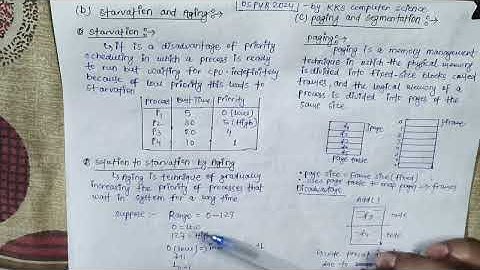 (b) Starvation and Aging :→
OSPYB 2024
- by KKS computer science
① Starvation :→
↳ it is a disadvantage of priority
scheduling in which a process is ready
to run but waiting for CPU indefinitely
because of low priority this leads to
starvation
process Bust Time Priority
P1 5 0 (low)
P2 30 5 (high)
P3 20 4
P4 10 1
② solution to starvation by Aging
↳ Aging is technique of gradually
increasing the priority of processes that
wait in system for a long time
suppose :- Range = 0-127
0 = low
127 = High
0 (low) =>
(c) paging and segmentation :→
paging :→
paging is a memory management
technique in which the physical memory
is divided into fixed-size blocks called
frames, and the logical memory of a
process is divided into pages of the
same size.
page
frame
page table
• page size = frame size (fixed)
• uses page table to map pages → frames
Disadvantage